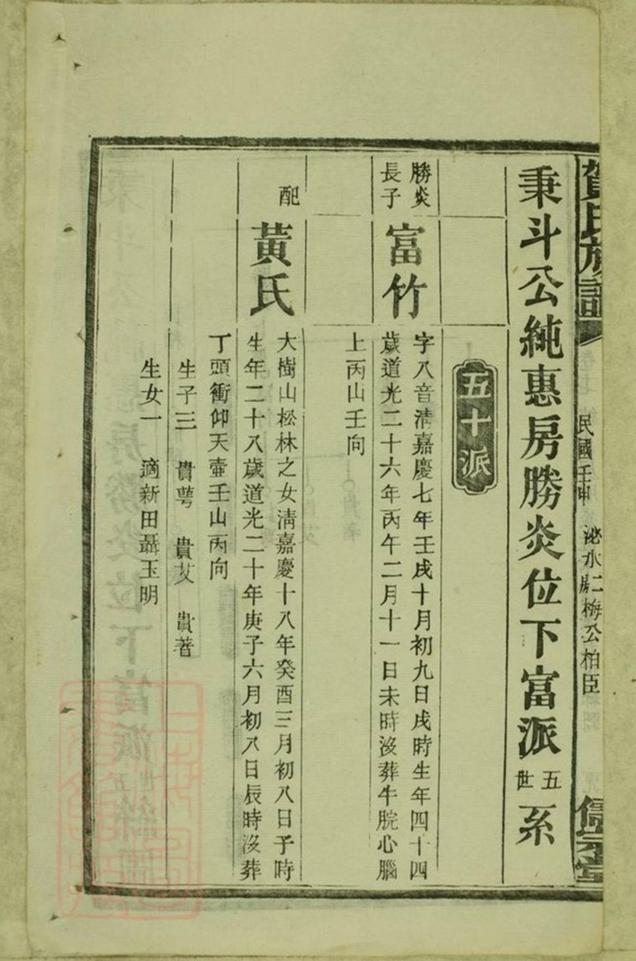 賀氏族譜
民國壬申
泌水二梅公柏臣
秉斗公純惠房勝炎位下富派五世系
五十派
勝炎長子
富竹
字八音清嘉慶七年壬戌十月初九日戌時生年四十四
歲道光二十六年丙午二月十一日未時沒葬牛脘心腦
上丙山壬向
配
黃氏
大樹山松林之女清嘉慶十八年癸酉三月初八日子時
生年二十八歲道光二十年庚子六月初八日辰時沒葬
丁頭衝仰天壺壬山丙向
生子三 貴萼 貴艾 貴著
生女一 適新田聶玉明